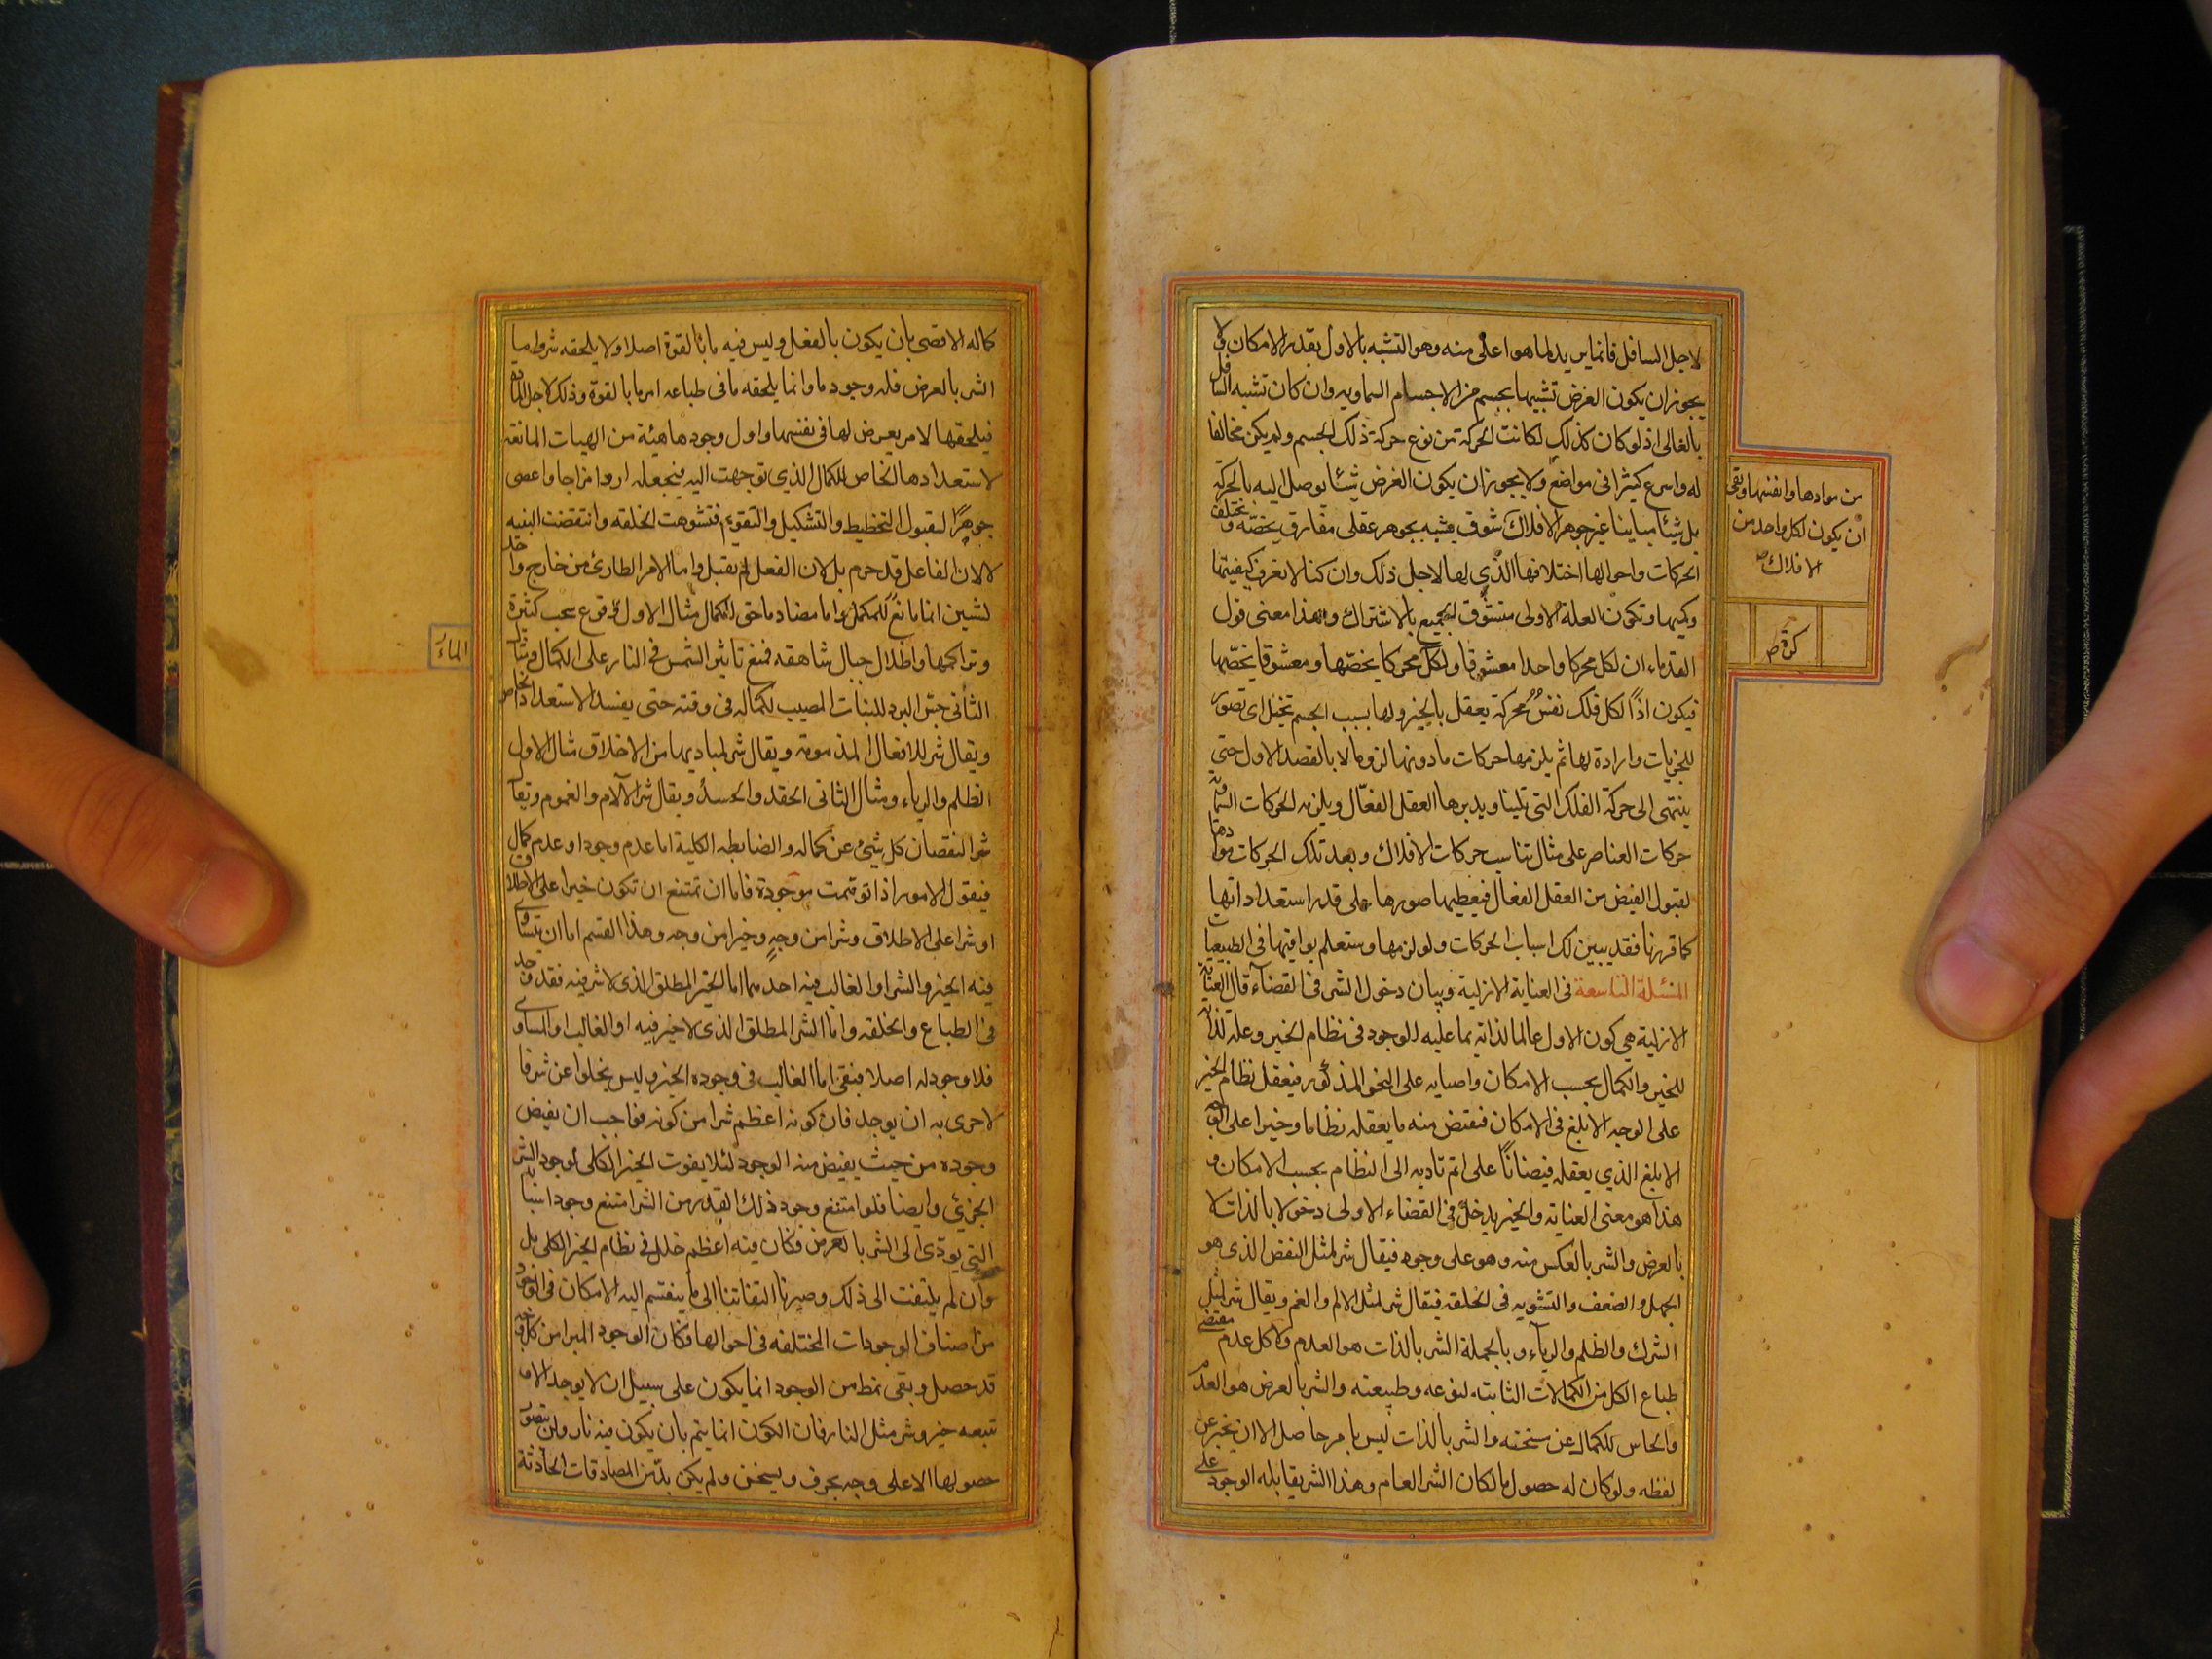 لاجل السافل فانما يريد لما هو اعلى منه وهو التشبه بالاول بقدر الامكان ولا
يجوز ان يكون الغرض تشبيها بجسم من الاجسام السماويه وان كان تشبه السافل
بالعالى اذ لو كان كذلك لكانت الحركة من نوع حركة ذلك الجسم ولم يكن مخالفا
له واسرع كثيرا فى مواضع ولا يجوز ان يكون الغرض شيئا يوصل اليه بالحركة
بل شيئا مباينا غير جوهر الافلاك شوق يشبه بجوهر عقلى مفارق يخصه و يختلف
الحركات واحوالها اختلافها الذي لها لاجل ذلك وان كنا لا نعرف كيفيتها
وكميها وتكون العلة الاولى متشوق الجميع بالاشتراك وهذا معنى قول
القدماء ان لكل محركا واحدا معشوقا ولكل محركا يخصها ومعشوقا يخصها
فيكون اذًا لكل فلك نفس محركة يعقل بالخير ولها بسبب الجسم تخيل اى تصور
للجزئيات وارادة لها ثم يلزمها حركات ما دونها لزوما لا بالقصد الاول حتى
ينتهى الى حركة الفلك التى تلينا ويدبرها العقل الفعال ويلزم الحركات السماوية
حركات العناصر على مثال تناسب حركات الافلاك وبعد تلك الحركات موادها
لقبول الفيض من العقل الفعال فيعطيها صورها على قدر استعداداتها
كما قررنا فقد يبين لك اسباب الحركات ولوازمها وستعلم بواقيها فى الطبيعيات
المسئلة التاسعة فى العناية الازلية وبيان دخول الشر فى القضاء قال العناية
الازلية هى كون الاول عالما لذاته بما عليه الوجود فى نظام الخير وعلة لذاته
للخير والكمال بحسب الامكان واضيا به على النحو المذكور فيعقل نظام الخير
على الوجه الابلغ فى الامكان فيفيض منه ما يعقله نظاما وخيرا على الوجه
الابلغ الذي يعقله فيضانًا على اتم تاديه الى النظام بحسب الامكان و
هذا هو معنى العناية والخير يدخل فى القضاء الاولى دخولا بالذات لا
بالعرض والشر بالعكس منه وهو على وجوه فيقال شر لمثل النقص الذى هو
الجهل والضعف والتشويه فى الخلقه فيقال شر لمثل الالم والغم ويقال شر لمثل
الشرك والظلم والرياء وبالجملة الشر بالذات هو العدم ولا كل عدم مقتضى
طباع الكل من الكمالات الثابتة لنوعه وطبيعته والشر بالعرض هو العدم
والحابس للكمال عن مستحقه والشر بالذات ليس بامر حاصل الا ان يخبر عن
لفظه ولو كان له حصول ما لكان الشر العام وهذا الشر يقابله الوجود على
من موادها وانفسها وبقى
ان يكون لكل واحد من
الافلاك
كرة
كماله الاقصى بان يكون بالفعل وليس فيه ما بالقوة اصلا ولا يلحقه شر واما
الشر بالعرض فله وجود ما وانما يلحقه ما فى طباعه امر ما بالقوة وذلك لاجل المادة
فيلحقها لامر يعرض لها فى نفسها واول وجودها هيئة من الهيات المانعة
لاستعدادها الخاص للكمال الذي توجهت اليه فيجعله اردا مزاجا واعصى
جوهرًا لقبول التخطيط والتشكيل والتقويم فتشوهت الخلقه وانتقضت البنيه
لا لان الفاعل قد حرم بل لان الفعل لم يقبل واما الامر الطارئ من خارج واحد
لشيئين اما مانع للمكمل واما مضاد ماحق للكمال مثال الاول وقوع سحب كثيرة
وتراكمها واظلال جبال شاهقه فمنع تاثير الشمس فى النار على الكمال ومثال
الماء
الثانى حبس البرد للنبات المصيب لكماله فى وقته حتى يفسد الاستعداد الخاص
ويقال شر للافعال المذمومة ويقال شر لمباديها من الاخلاق مثال الاول
الظلم والرياء ومثال الثانى الحقد والحسد ويقال شر الآلام والغموم ويقال
شر لنقصان كل شئ عن كماله والضابطه الكلية اما عدم وجود او عدم كمال
فيقول الامور اذا توهمت موجودة فاما ان تمتنع ان تكون خيرا على الاطلاق
او شرا على الاطلاق وشرا من وجهٍ وخيرا من وجه وهذا القسم اما ان يتساوى
فيه الخير والشر او الغالب فيه احدهما اما الخير المطلق الذى لا شر فيه فقد وجد
فى الطباع والخلقه واما الشر المطلق الذى لا خير فيه او الغالب او المساوى
فلا وجود له اصلا فبقى اما الغالب فى وجوده الخير وليس يخلوا عن شر فا
لاحرى به ان يوجد فان كونه اعظم شرا من كونه فواجب ان يفيض
وجوده من حيث يفيض منه الوجود لئلا يفوت الخير الكلى لوجود الشر
الجزئى وايضا فلو امتنع وجود ذلك القدر من الشر امتنع وجود اسبابه
التى يودى الى الشر بالعرض فكان فيه اعظم خلل فى نظام الخير الكلى بل
وان لم يلتفت الى ذلك وصيرنا التفاتنا الى ما ينقسم اليه الامكان فى الوجود
من اصناف الوجودات المختلفه فى احوالها فكان الوجود المبرا من كل وجه
قد حصل وبقى نمط من الوجود انما يكون على سبيل ان لا يوجد الا و
تبعه خير وشر مثل النار فان الكون انما يتم بان يكون فيه نار ولن يتصور
حصولها الا على وجه يحرق ويسخن ولم يكن بد من المصادفات الحادثة